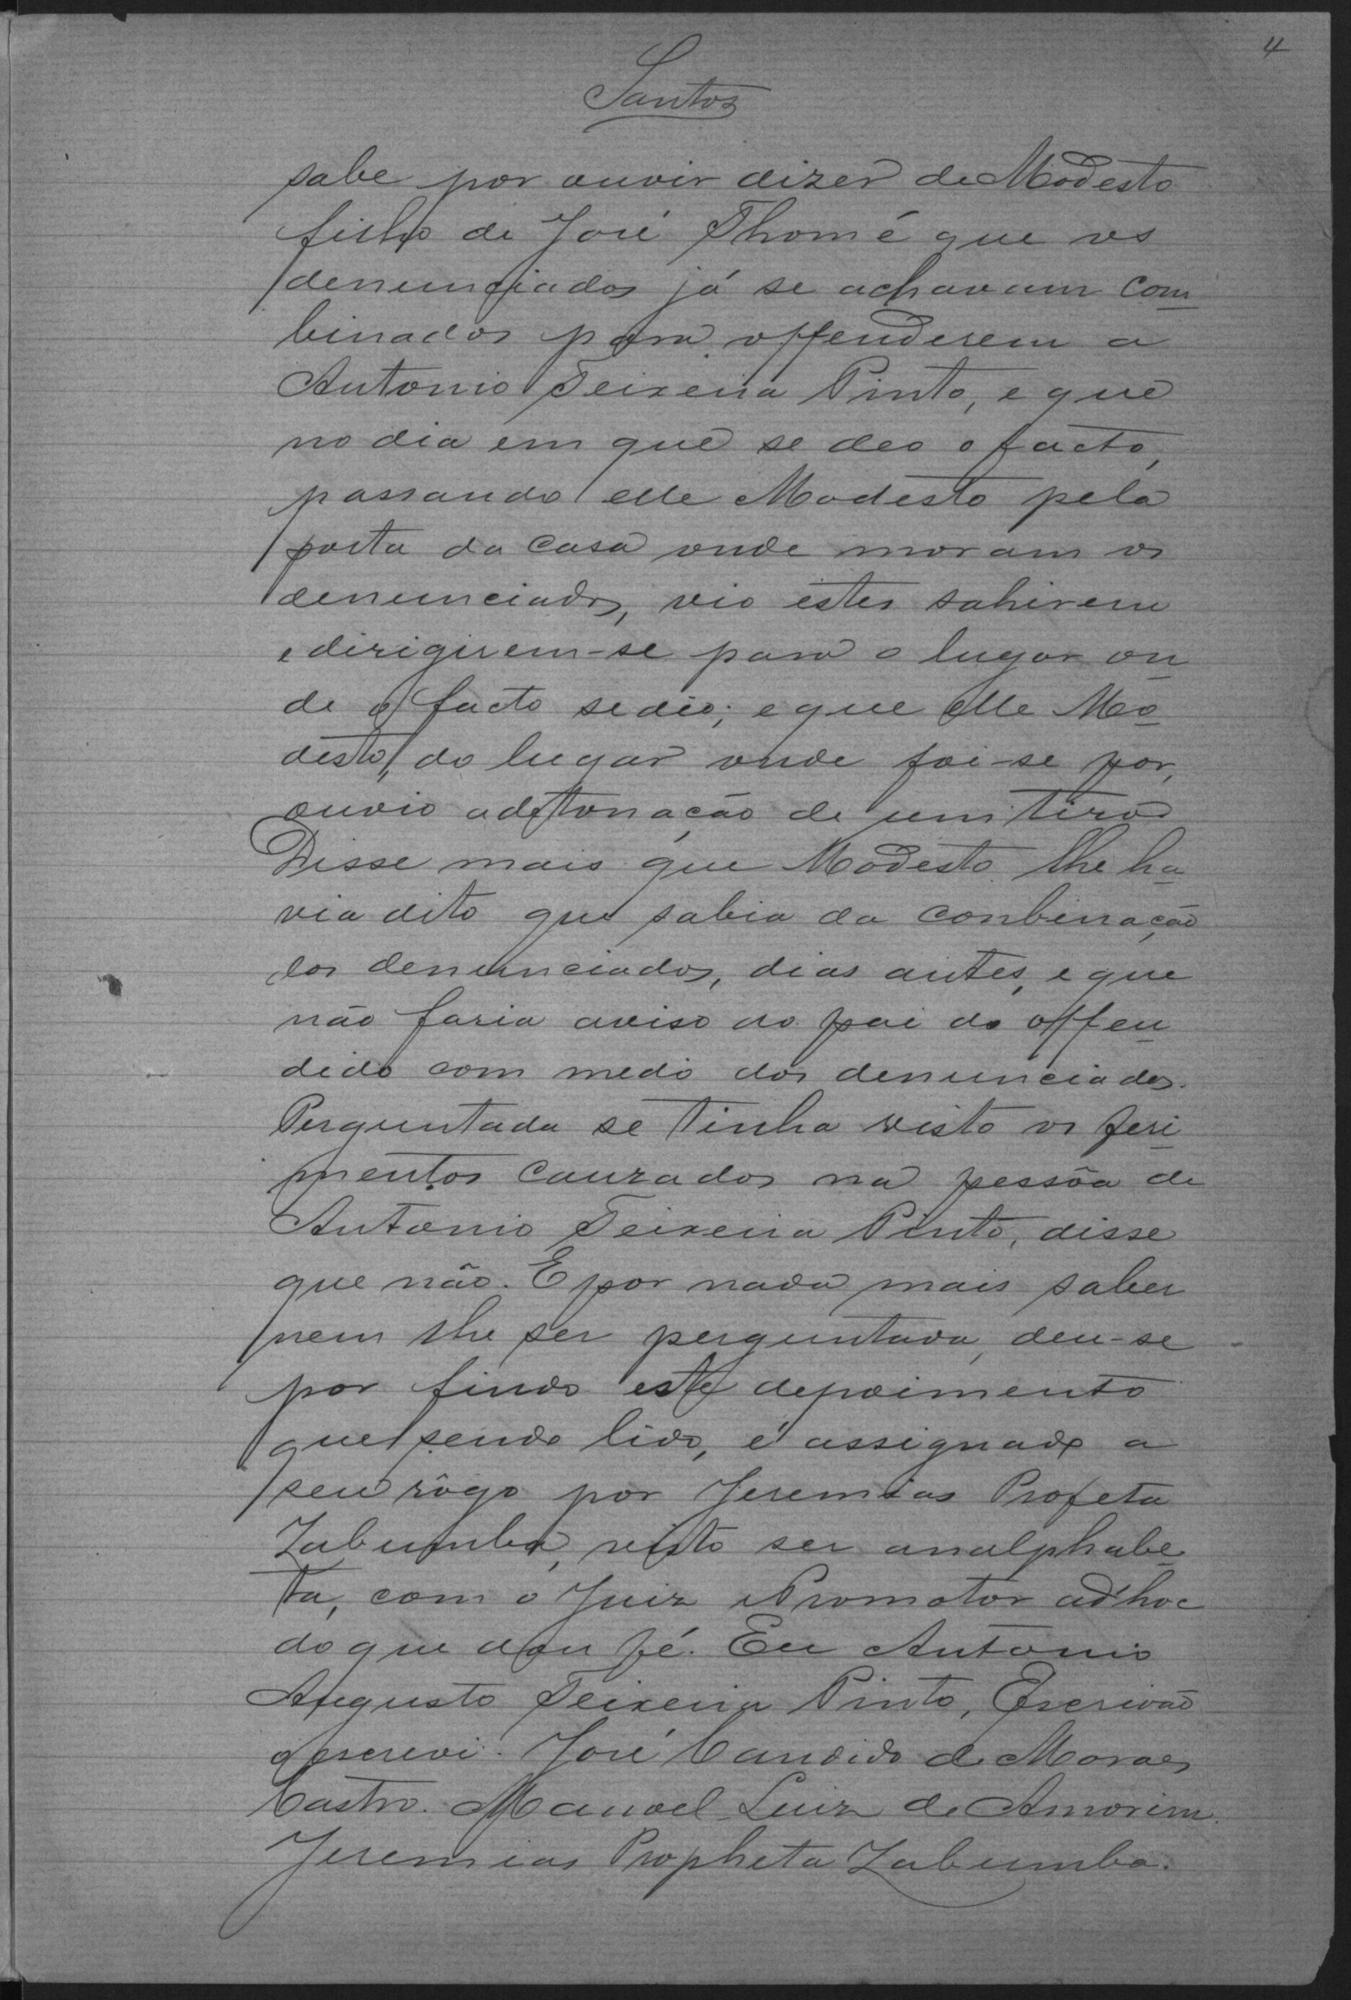 4
Santos
sabe por ouvir dizer de Modesto
filho de José Thomé que os
denunciados já se achavam com
binados para offenderem a
Antonio Teixeira Pinto, e que
no dia em que se deo o facto,
passando elle Modesto pela
porta da casa onde moram os
denunciados, vio estes sahirem
e dirigirem-se para o lugar on
de o facto se deo; e que elle Mo
desto, do lugar onde foi-se por,
ouvio a detonação de um tiro
Disse mais que Modesto lhe ha
via dito que sabia da conbinação
dos denunciados, dias antes, e que
não faria aviso ao pai do offen
dido com medo dos denunciados.
Perguntada se tinha visto os feri
mentos cauzados na pessôa de
Antonio Teixeira Pinto, disse
que não. E por nada mais saber
nem lhe ser perguntada, deu-se
por findo este depoimento
que sendo lido, é assignado a
seu rôgo por Jeremias Profeta
Zabumba, visto ser analphabe
ta, com o Juiz e Promotor ad'hoc
do que dou fé. Eu Antonio
Augusto Teixeira Pinto, Escrivão
o escrevi. José Candido de Moraes
Castro. Manoel Luiz de Amorim.
Jeremias Propheta Zabumba.